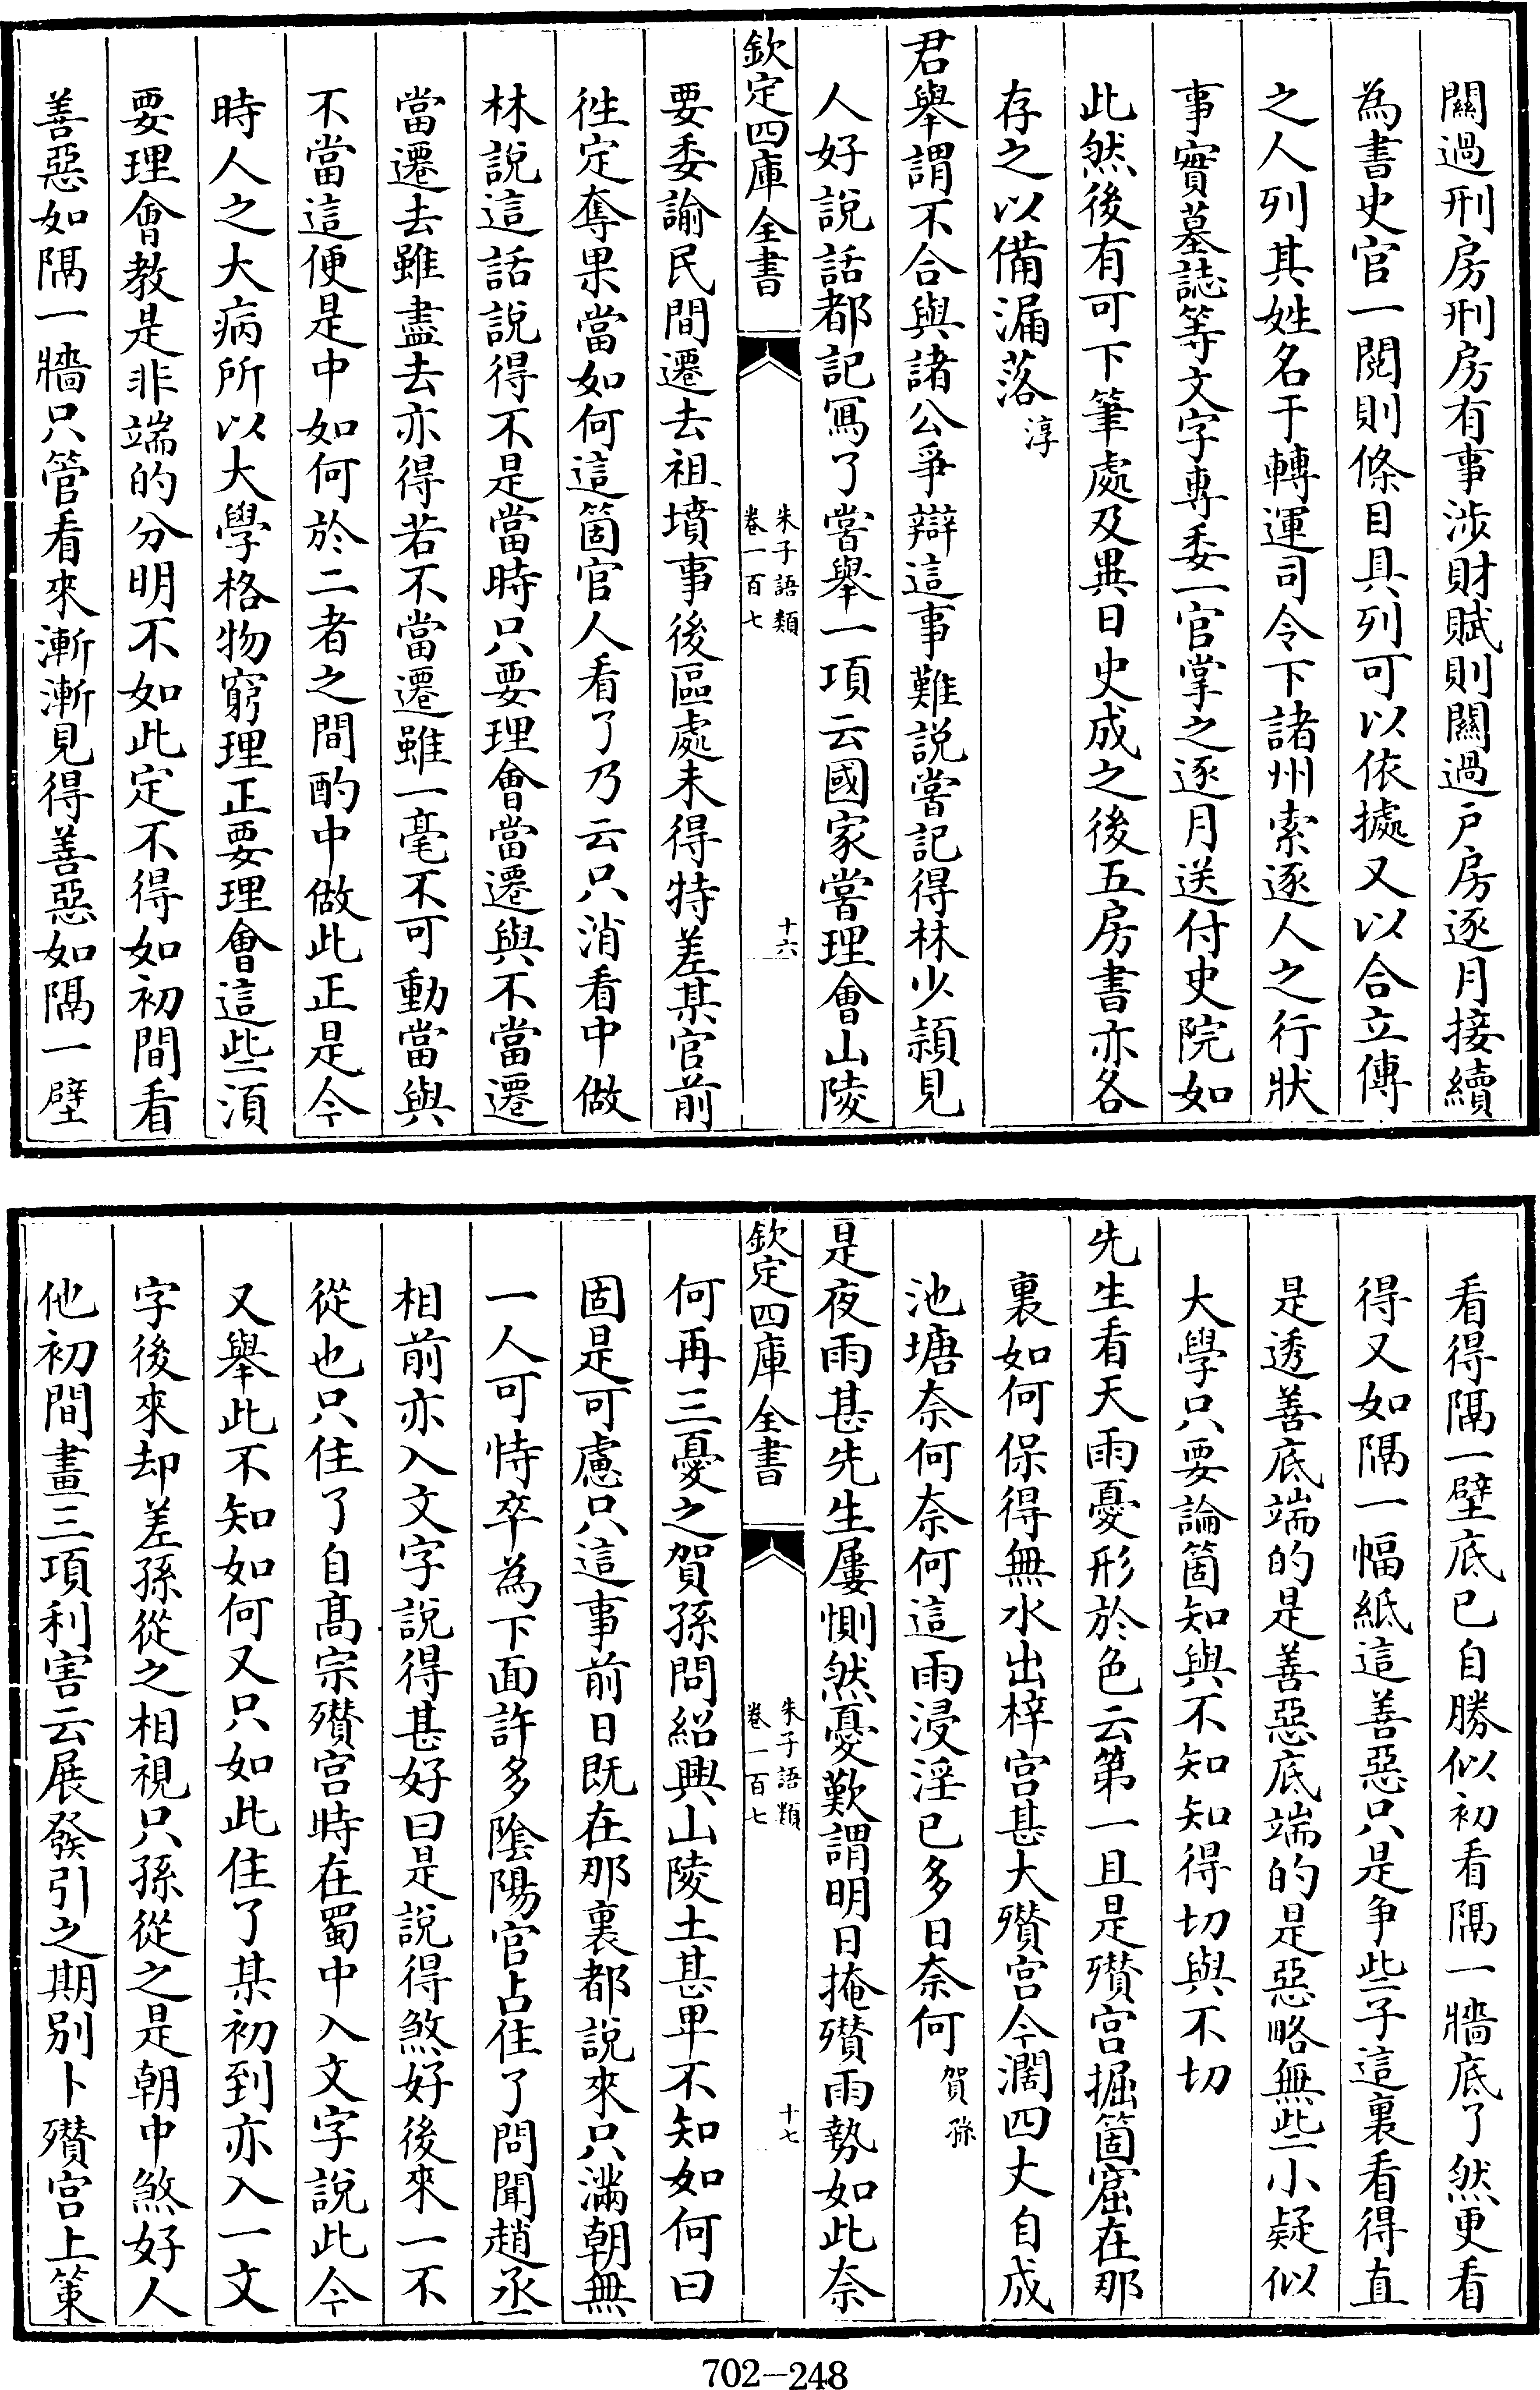 關過刑房刑房有事涉財賦則關過户房逐月接續
為書史官一閱則條目具列可以依據又以合立傳
之人列其姓名于轉運司令下諸州索逐人之行狀
事實墓誌等文字專委一官掌之逐月送付史院如
此然後有可下筆處及異日史成之後五房書亦各
存之以備漏落淳
君舉謂不合與諸公爭辯這事難説嘗記得林少頴見
人好説話都記寫了嘗舉一項云國家嘗理會山陵
欽定四庫全書
朱子語類
卷一百七
十六
要委諭民間遷去祖墳事後區處未得特差某官前
徃定奪果當如何這箇官人看了乃云只消看中做
林説這話説得不是當時只要理會當遷與不當遷
當遷去雖盡去亦得若不當遷雖一毫不可動當與
不當這便是中如何於二者之間酌中做此正是今
時人之大病所以大學格物窮理正要理會這些湏
要理會教是非端的分明不如此定不得如初間看
善惡如隔一牆只管看來漸漸見得善惡如隔一壁
看得隔一壁底已自勝似初看隔一牆底了然更看
得又如隔一幅紙這善惡只是争些子這裏看得直
是透善底端的是善惡底端的是惡略無些小疑似
大學只要論箇知與不知知得切與不切
先生看天雨憂形於色云第一且是殯宫掘箇窟在那
裏如何保得無水出梓宫甚大殯宫今濶四丈自成
池塘奈何奈何這雨浸淫已多日奈何賀孫
是夜雨甚先生屢惻然憂歎謂明日掩殯雨勢如此奈
欽定四庫全書
朱子語類
卷一百七
十七
何再三憂之賀孫問紹興山陵土甚卑不知如何曰
固是可慮只這事前日既在那裏都説來只滿朝無
一人可恃卒為下面許多隂陽官占住了問聞趙丞
相前亦入文字説得甚好曰是説得煞好後來一不
從也只住了自髙宗殯宫時在蜀中入文字説此今
又舉此不知如何又只如此住了某初到亦入一文
字後來却差孫從之相視只孫從之是朝中煞好人
他初間畫三項利害云展發引之期别卜殯宫上䇿
702-248